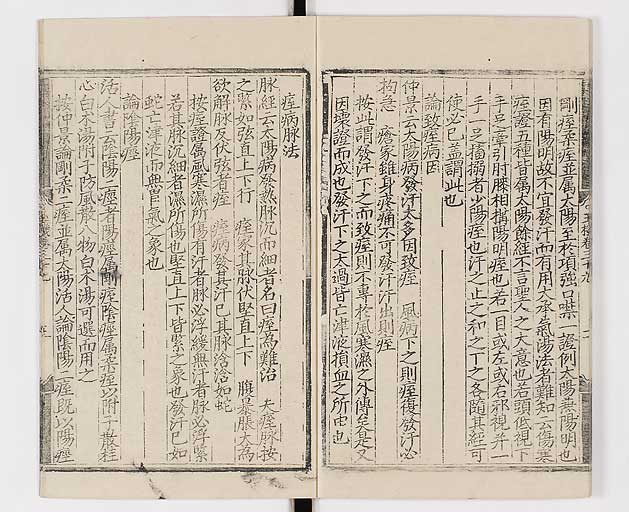 剛痓柔痓並屬太陽至於項強口噤一證例太陽無陽明也
因有陽明故不宜發汗而有用大承氣湯法者難知云傷寒
痓證五種皆屬太陽餘經不言聖人之大意也若頭低視下
手足牽引肘膝相搆陽明痓也若一目或左右斜視并一
手一足搐搦者少陽痓也汗之止之和之下之各隨其經可
使必已蓋謂此也
論致痓病因
仲景云太陽病發汗太多因致痓 風病下之則痓復發汗必
拘急 瘡家雖身疼痛不可發汗汗出則痓
按此謂發汗下之而致痓則不專於風寒濕之外傳矣是又
因壞證而成也發汗下之大過皆亡津液損血之所由也
痓病脉法
脉經云太陽病發熱脉沉而細者名曰痓為難治 夫痓脉按
之緊如弦直上下行 痓家其脉伏堅直上下 腹暴脹大為
欲解脉反伏弦者痓 痓病發其汗已其脉滄滄如蛇
按痓證屬風寒濕所傷有汗者脉必浮緩無汗者脉必浮緊
若其脉沉細者濕所傷也堅直上下皆緊之象也發汗已如
蛇亡津液而無胃氣之象也
論陰陽痓
活人書云至陰陽二痓者陽痓屬剛痓陰痓屬柔痓以附子散桂
心白术湯附子防風散八物白术湯可選而用之
按仲景論剛柔二痓並屬太陽活人論陰陽二痓既以陽痓